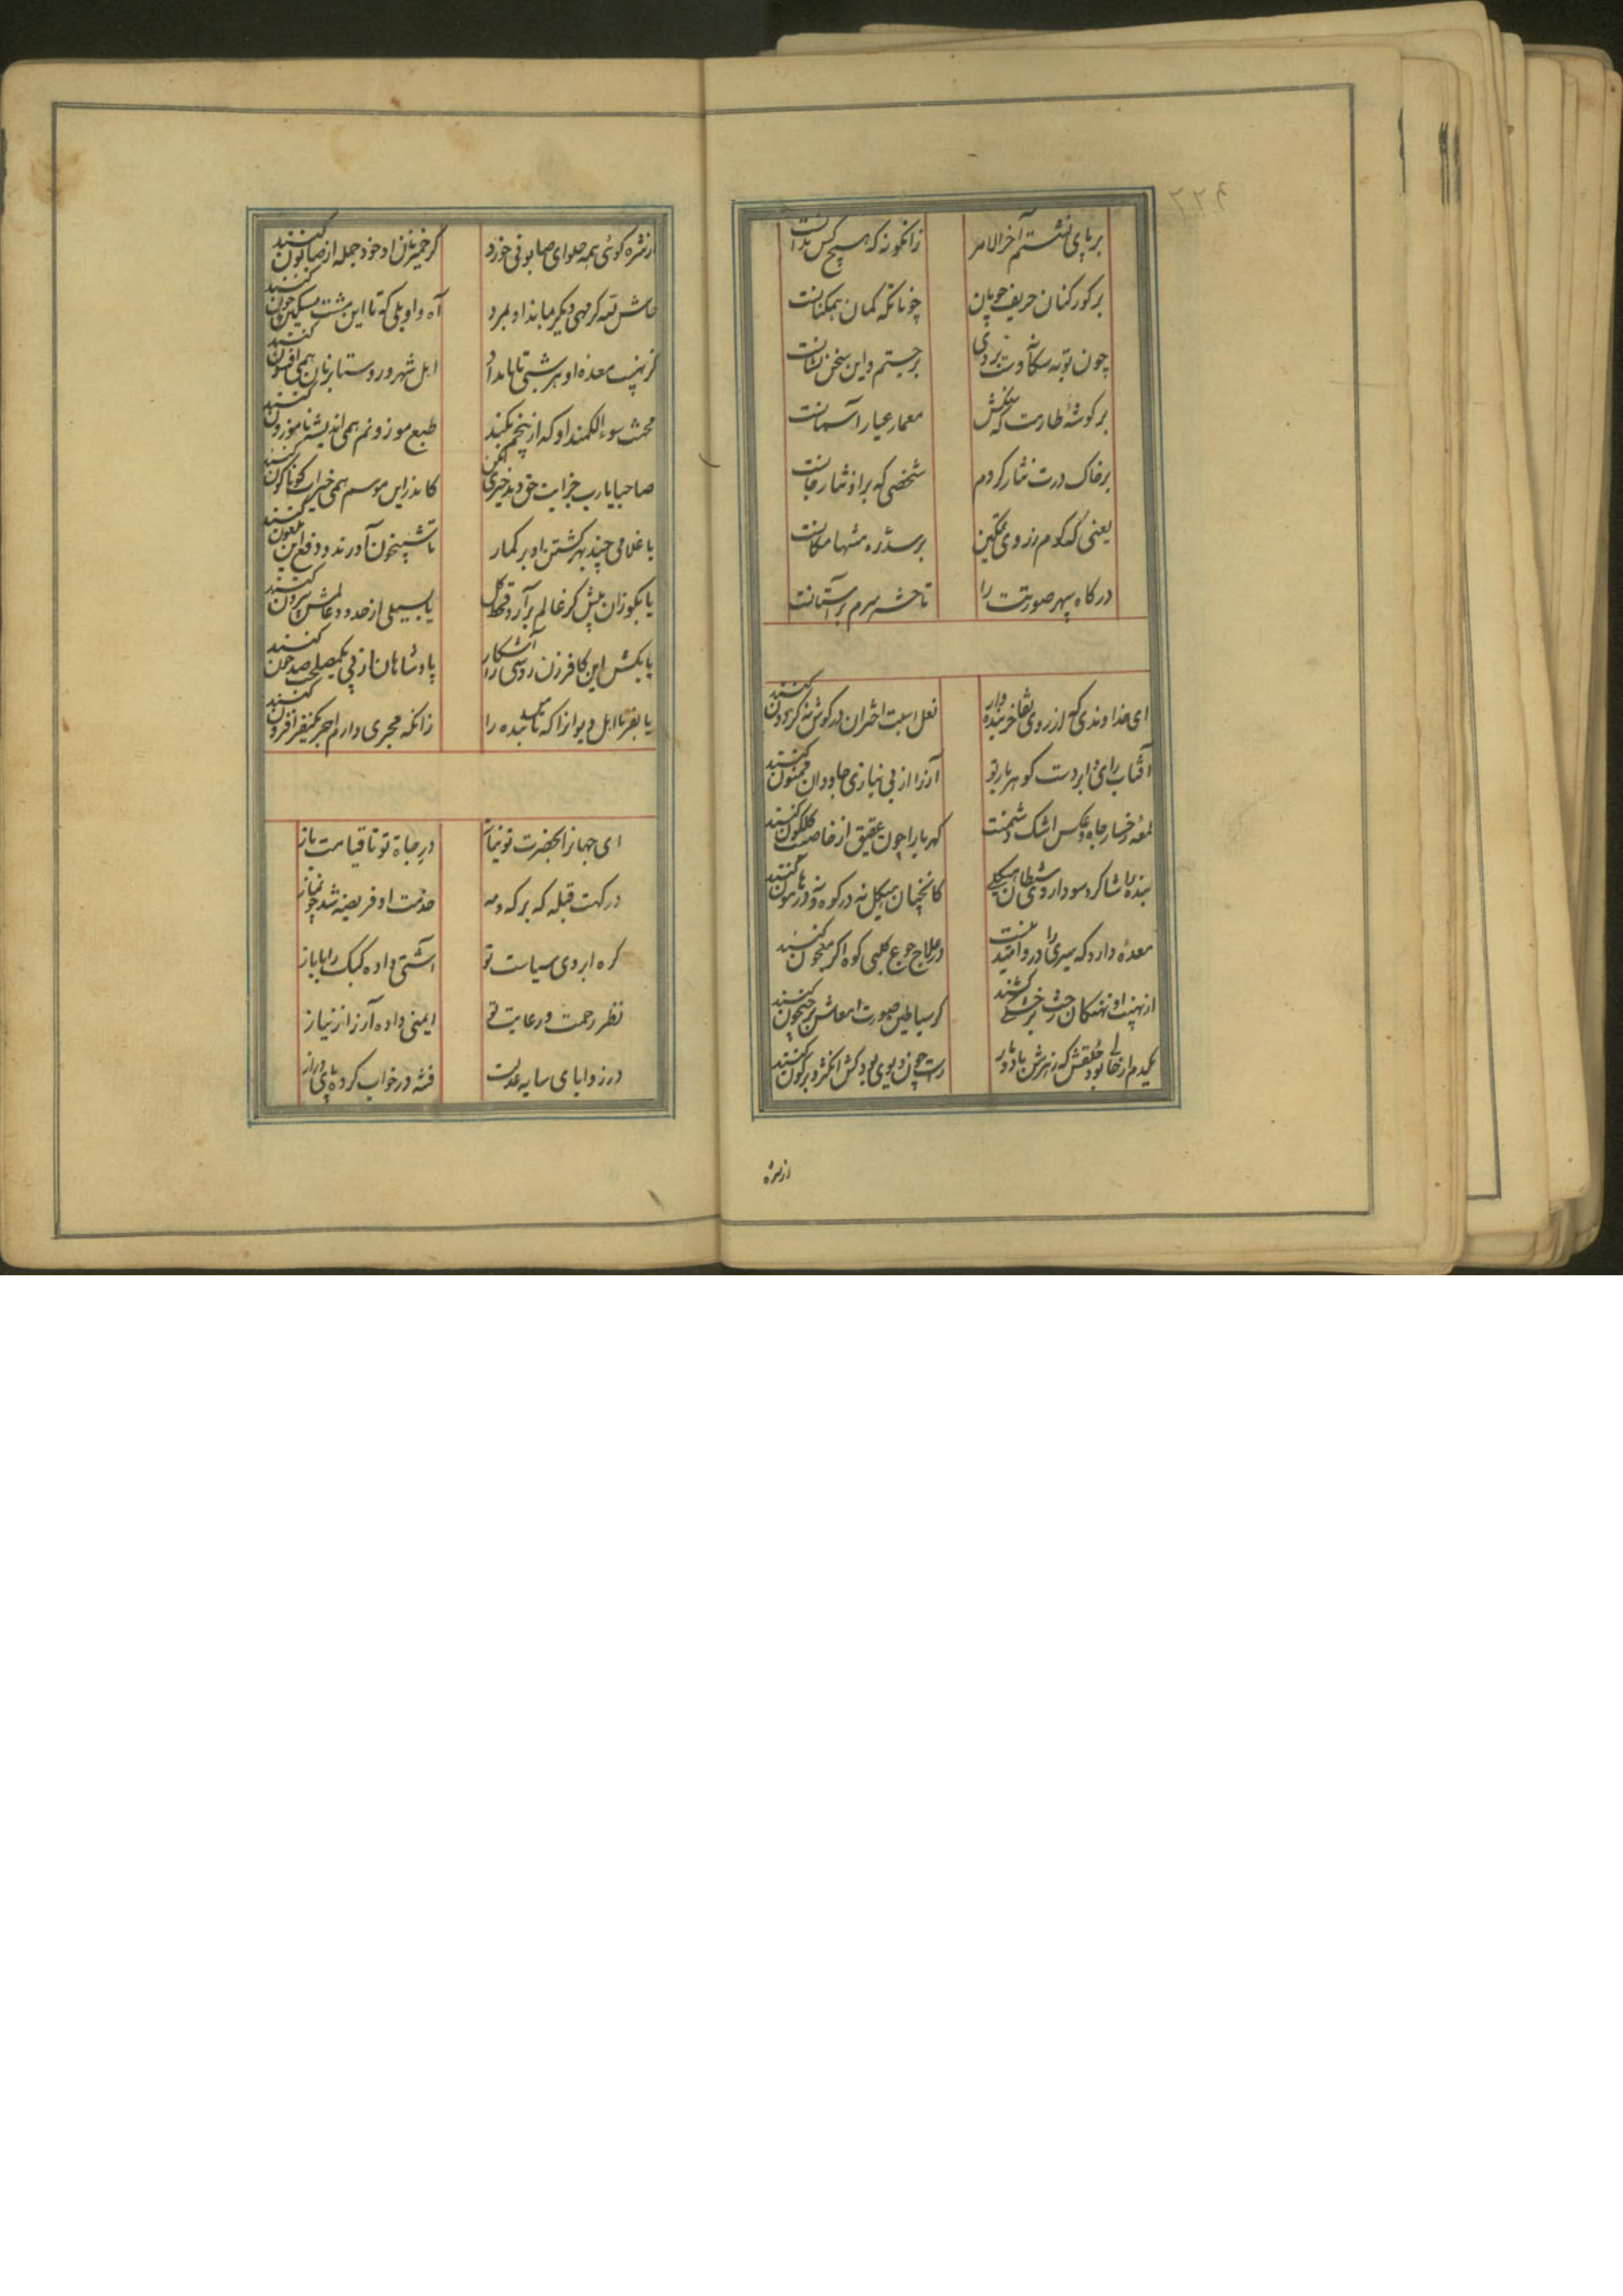 ۲۲۹
بر پای نشستم آخر الامر
زانگونه که هیچ کس ندانست
بر کور کنان حریف جویان
چونانکه گمان همکنانست
چون توبه سگآوت بردی
برجستم و این سخن نشانست
بر گوشهٔ طارمت که سقفش
معمار عیار آسمانست
بر خاک درت نثار کردم
شخصی که برو نثار جانست
یعنی که کدوم رزوی تمکین
بر سدره منتها مکانست
درگاه سپهر صورتت را
تا حشر سرم بر آستانست
ای خداوندی که از روی تفاخر بنده وار
نعل اسبت اختران در گوش نه گردون کنند
آفتاب رای و ابر دست گوهربار تو
آز را از بی نیازی جاودان ممنون کنند
لمعه رخسار جاه و عکس اشک دشمنت
کهربا را چون عقیق از خاصیت گلگون کنند
بنده را شاگرد سوداروی شیطان هیکلی
کانچنان هیکل نه در کوه و نه در هامون کنند
معده دارد که سیری را درو امید نیست
در علاج جوع کلبی کوه اگر معجون کنند
از نهیب او نهنگان رخت بر خشکی کشند
گر سیاطین صورت امعاش بر جیحون کنند
یکدم ار خالی بود حلقش که زهرش باد و مار
راست چون دیوی بود کش انگژد بر کون کنند
از شره
از شره گوئی همه حلوای صابونی خورد
گر خمیر نان او خود جمله از صابون کنند
حاش لله گر مهی دیگر بماند او نمرد
آه و اویلی که تا این مشت مسکین چون کنند
از نهیب معده او هر شبی تا بامداد
اهل شهر و روستا بر نان همی افسون کنند
محنت سوء الکمند او که از بیخم بکند
طبع موزونم همی اندیشه ناموزون کنند
صاحبا یا رب جزایت حق دهد خیری بکن
کاندرین موسم همی خیرات گوناگون کنند
با غلامی چند بهر کشتن او بر گمار
تا شبیخون آورند و دفع این ملعون کنند
یا بگو زان پیش کز عالم برآرد قحط کل
یا بسیلی از حدود عالمش بیرون کنند
یا بکش این کافر زن روسپی را آشکار
پادشاهان از پی یک مصلحت صد خون کنند
یا بفرما اهل دیوان را که تا بنده را
زانکه مجری دارم اجر یکنفر افزون کنند
ای جهان را بحضرت تو نیاز
در جاه تو تا قیامت باز
درکهت قبله که بر که و مه
خدمت او فریضه شد چو نماز
گره ابروی سیاست تو
آشتی داده کبک را با باز
نظر رحمت و رعایت تو
ایمنی داده آز را ز نیاز
در زوایای سایه عدلت
فتنه در خواب کرده پای دراز